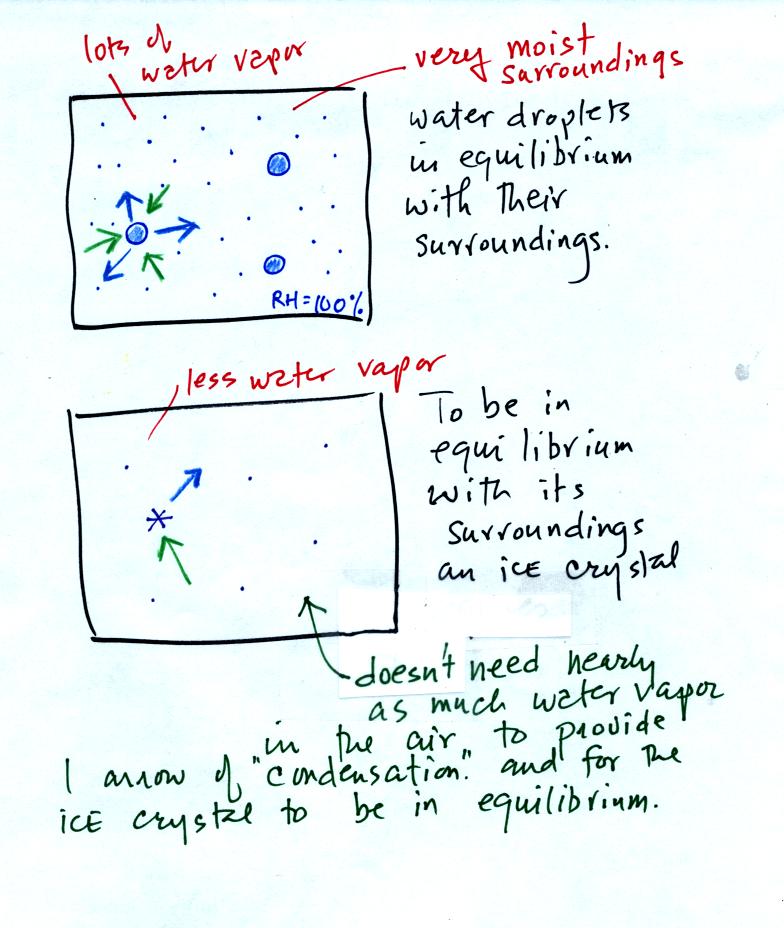 lots of
water vapor
very moist
surroundings
water droplets
in equilibrium
with their
surroundings.
RH=100%
less water vapor
To be in
equilibrium
with its
surroundings
an ICE crystal
doesn't need nearly
as much water vapor
in the air to provide
1 arrow of "condensation." and for the
ICE crystal to be in equilibrium.